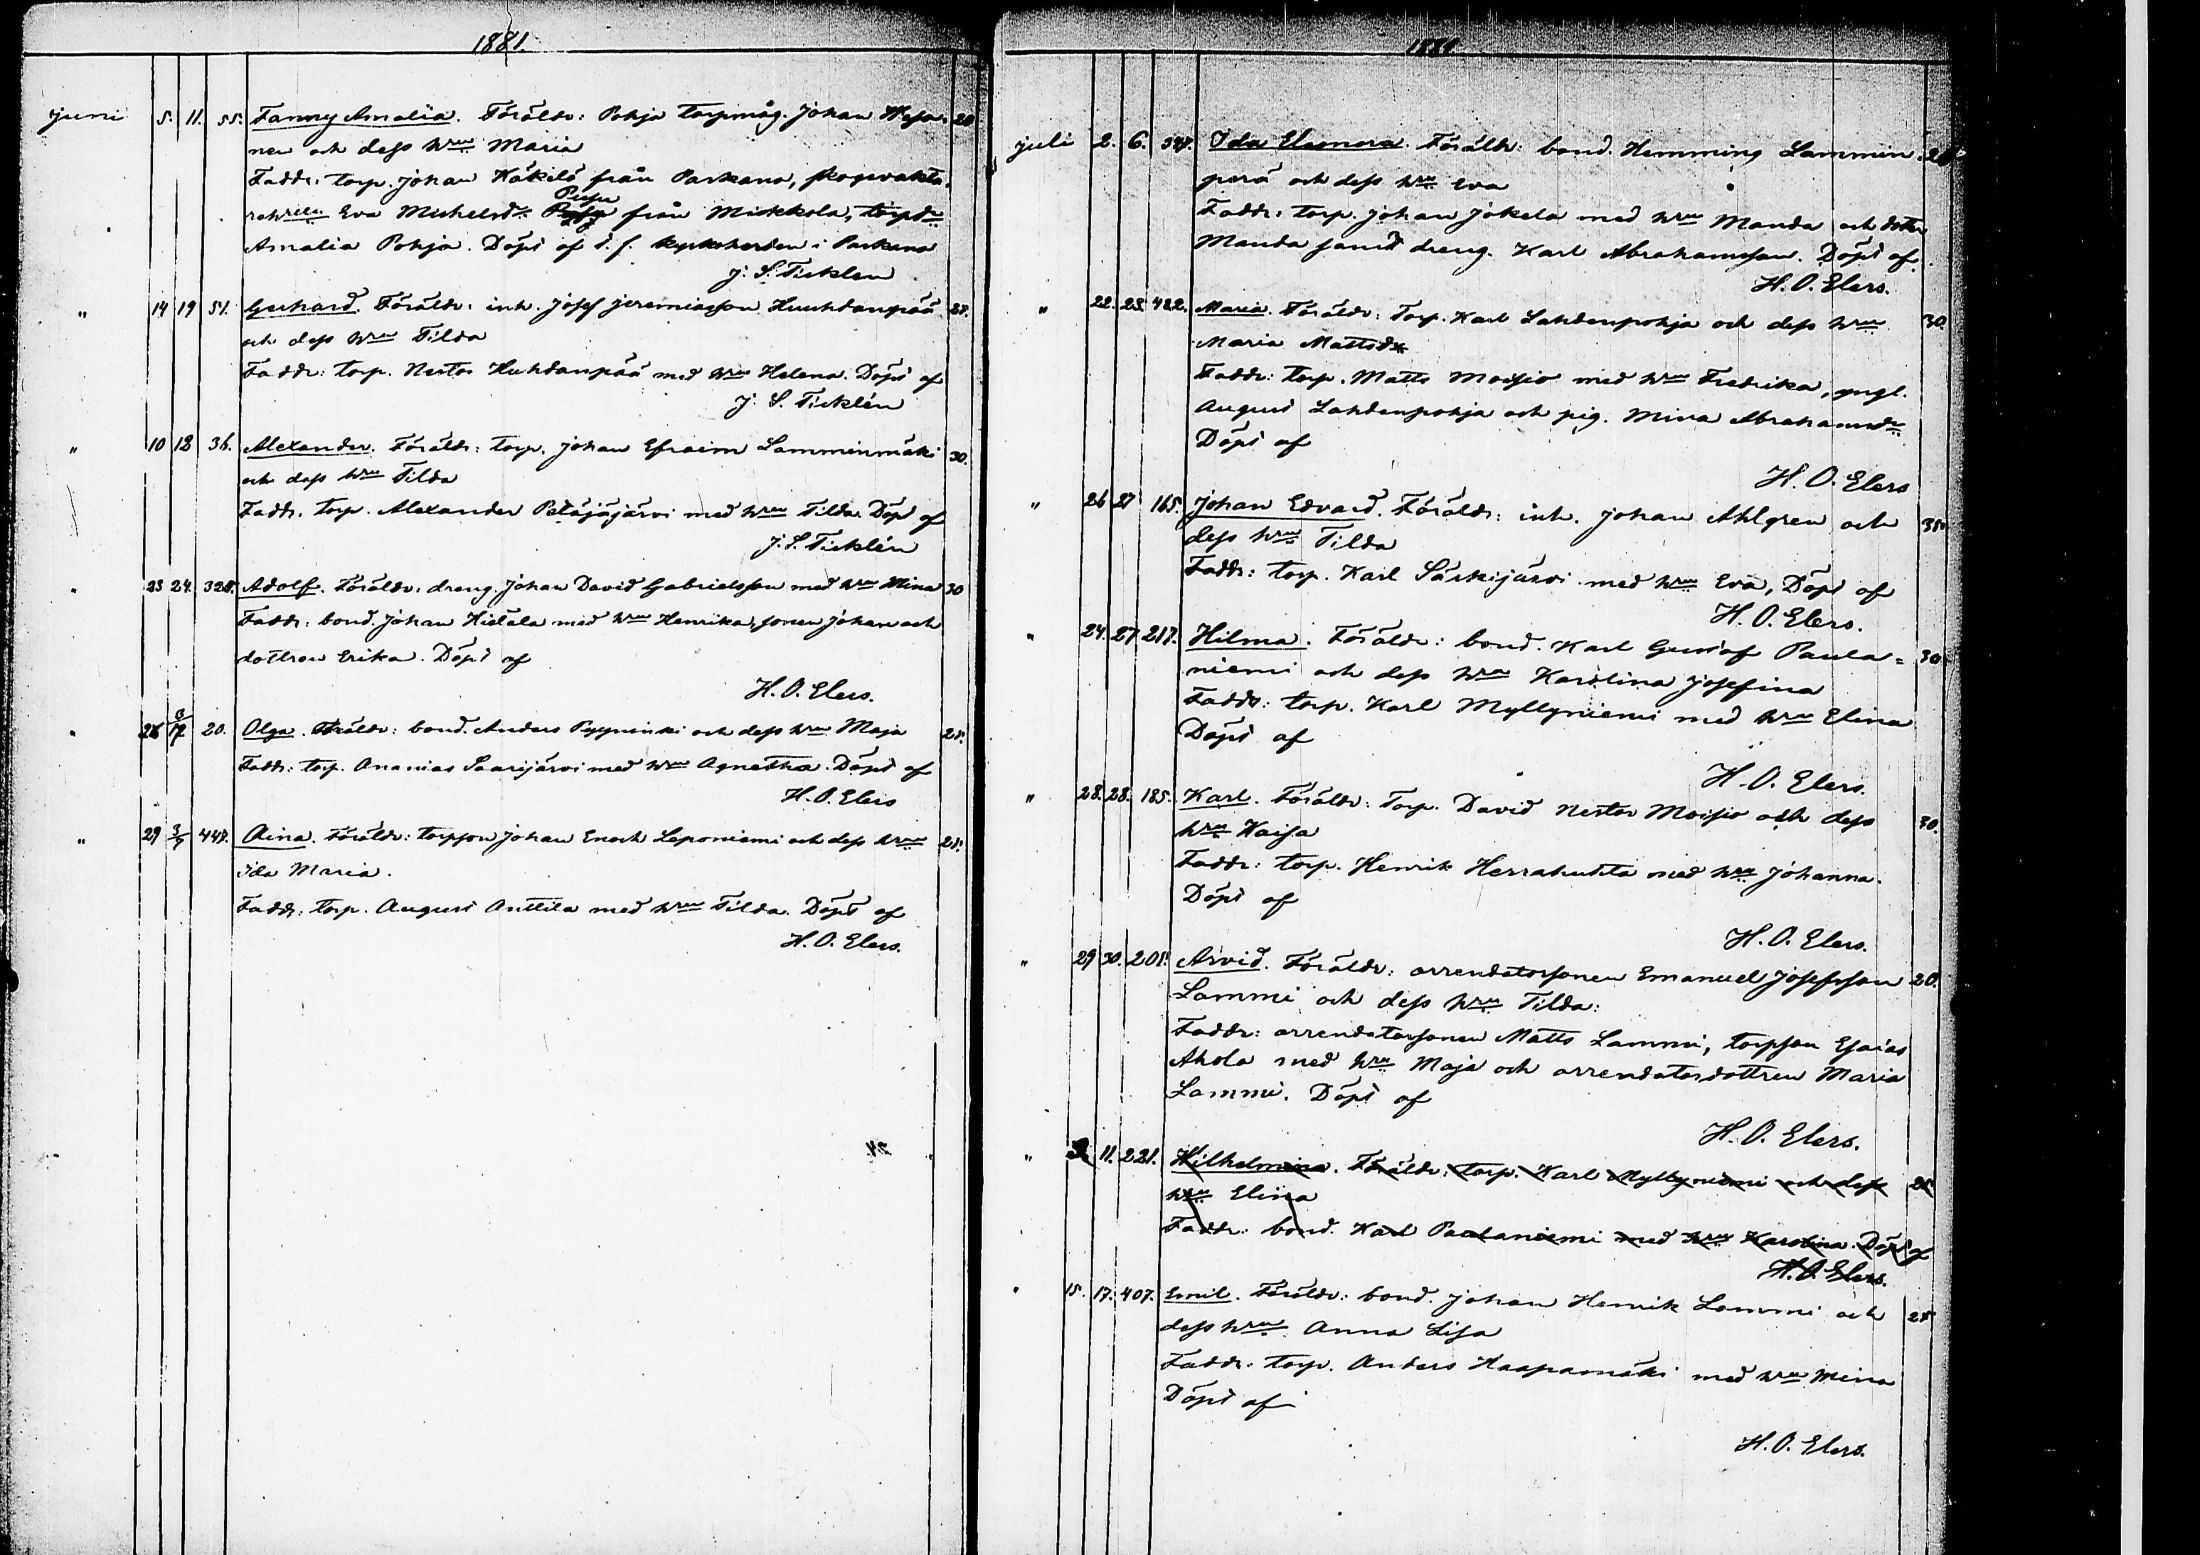 1881.
Juni 5. 11. 55. Fanny Amalia. Föräldr: Pohja torpmåg. Johan Wesa- 28
nen och dess hru Maria
Faddr: torp. Johan Käkelä från Parkano, skogsvakta-
rehru Eva Michelsdr från Mickkola, torpdr
Amalia Pohja. Döpt af t. f. kyrkoherden i Parkano
J. S. Ticklen
" 14 19 51. Gerhard. Föräldr: inh. Josef Jeremiasson Huuhdanpää 28.
och dess hru Tilda
Faddr: torp. Nestor Huhdanpää med hru Helena. Döpt af
J. S. Ticklén
" 10 12 36. Alexander. Föräldr: torp. Johan Efraim Lamminmäki 30.
och dess hru Tilda
Faddr. torp. Alexander Petäjäjärvi med hru Tilda. Döpt af
J. S. Ticklén
" 23 24. 328. Adolf. Föräldr: dreng. Johan David Gabrielsson med hru Mina 30
Faddr: bond. Johan Hietala med hru Henrika, sonen Johan och
dottren Erika. Döpt af
H. O. Elers.
" 20. Olga. Föräldr: bond. Anders och dess hru Maja 28.
Faddr: torp. Ananias Saarijärvi med hru Agnetha. Döpt af
H. O. Elers
" 29 3/7 447. Aina. Föräldr: torpson Johan Enoch Leponiemi och dess hru 28.
Ida Maria.
Faddr: torp. August Anttila med hru Tilda. Döpt af
H. O. Elers.
1881.
Juli 2. 6. Ida Eleonora. Föräldr: bond. Hemming Lammin-
perä och dess hru Eva
Faddr: torp. Johan Jokela med hru Manda och dotter
Manda samt dreng. Karl Abrahamsson. Döpt af
H. O. Elers.
" 22. 23. 482. Maria. Föräldr: Torp. Karl Lahdenpohja och dess hru 30.
Maria Mattsdr
Faddr: torp. Matts Moisio med hru Fredrika, yngl.
August Lahdenpohja och pig. Mina Abrahamsdr
Döpt af
H. O. Elers
" 26 27 165. Johan Edvard. Föräldr: inh. Johan Ahlgren och
dess hru Tilda
Faddr: torp. Karl Särkijärvi med hru Eva, Döpt af
H. O. Elers.
" 24. 27. 217. Hilma. Föräldr: bond. Karl Gustaf Paula= 30
niemi och dess hru Karolina Josefina
Faddr: torp. Karl Myllyniemi med hru Elina
Döpt af
H. O. Elers.
" 28. 28. 185. Karl. Föräldr: Torp. David Nestor Moisio och dess 30.
hru Kaisa
Faddr: torp. Henrik Herrahuhta med hru Johanna.
Döpt af
H. O. Elers.
" 29 30. 201. Arvid. Föräldr: arrendatorsonen Emanuel Josefsson 20.
Lammi och dess hru Tilda:
Faddr: arrendatorsonen Matts Lammi, torpson Esaias
Ahola med hru Maja och arrendatordottren Maria
Lammi. Döpt af
H. O. Elers.
" 11. 221. Wilhelmina. Föräldr: torp. Karl Myllyniemi och dess
hru Elina
Faddr: bond. Karl Paulaniemi med hru Karolina. Döpt af
H. O. Elers.
" 15. 17. 407. Emil. Föräldr: bond. Johan Henrik Lammi och 28
dess hru Anna Lisa
Faddr. torp. Anders Haapamäki med hru Mina
Döpt af
H. O. Elers.